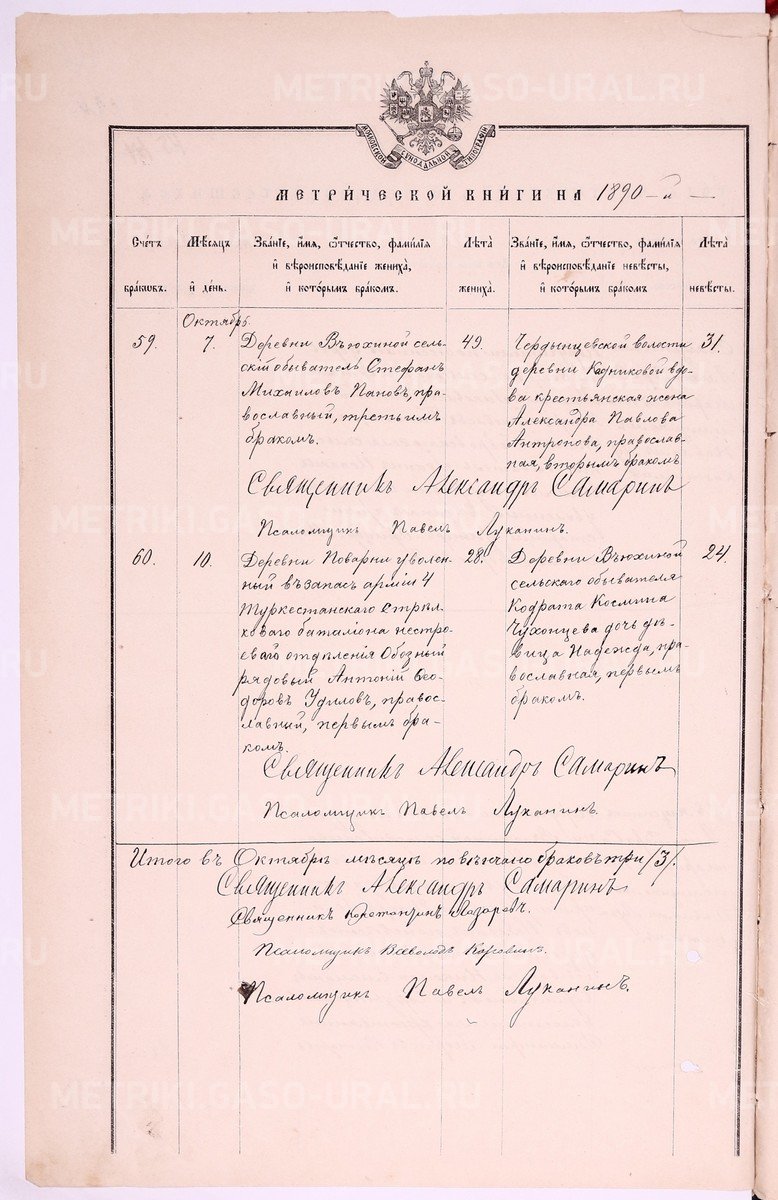 METRIKI.GASO-URAL.RU
МОСКОВСКОЙ СѴНОДАЛЬНОЙ ТИПОГРАФІИ
МЕТРИ́ЧЕСКОЙ КНИ́ГИ НА 1890-й
Сче́тъ бра́ковъ.
Мѣ́сяцъ и҆ де́нь.
Зва́нїе, и҆́мя, ѻ҆́тчество, фами́лїя и҆ вѣроисповѣ́данїе жениха̀, и҆ кото́рымъ бра́комъ.
Лѣ́та жениха̀.
Зва́нїе, и҆́мя, ѻ҆́тчество, фами́лїя и҆ вѣроисповѣ́данїе невѣ́сты, и҆ кото́рымъ бра́комъ
Лѣ́та невѣ́сты.
Октябрь.
59.
7.
Деревни Вьюхиной сель-
скій обыватель Стефанъ
Михаиловъ Пановъ, пра-
вославный, третьимъ
бракомъ.
49.
Чердынцевской волости
деревни Кадниковой вдо-
ва крестьянская жена
Александра Павлова
Антропова, православ-
ная, вторымъ бракомъ
31.
Священникъ Александръ Самаринъ
Псаломщик Павелъ Луканинъ.
60.
10.
Деревни Поварни уволен-
ный въ запас арміи 4
Туркестанскаго Стрѣл-
коваго баталіона нестро-
еваго отдѣленія Обозный
рядовый Антоній Ѳео-
доровъ Удиловъ, право-
славный, первымъ бра-
комъ.
28.
Деревни Вьюхиной
сельскаго обывателя
Кодрата Космина
Чухонцева дочь дѣ-
вица Надежда, пра-
вославная, первымъ
бракомъ.
24.
Священникъ Александръ Самаринъ
Псаломщик Павелъ Луканинъ.
Итого въ Октябрѣ мѣсяцѣ повѣнчано браковъ три /3/.
Священникъ Александръ Самаринъ
Священникъ Константинъ Лазаревъ.
Псаломщикъ Всеволодъ Коровинъ.
Псаломщикъ Павелъ Луканинъ.